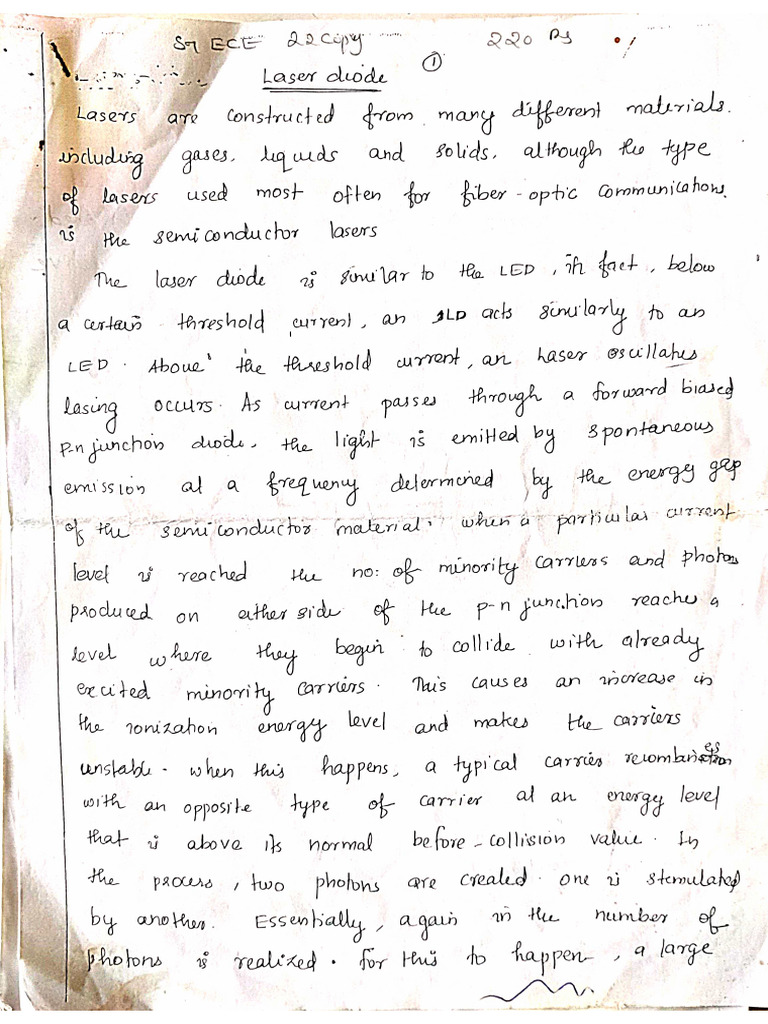 Sr ECE 22 Copy 220 Ps
①
Laser diode
Lasers are constructed from many different materials.
including gases, liquids and solids, although the type
of lasers used most often for fiber-optic communications.
is the semiconductor lasers
The laser diode is similar to the LED, in fact, below
a certain threshold current, an ILD acts similarly to an
LED. Above the threshold current, an Laser oscillates
lasing occurs. As current passes through a forward biased
p-n junction diode, the light is emitted by spontaneous
emission at a frequency determined by the energy gap
of the semiconductor material. when a particular current
level is reached the no: of minority carriers and photons
produced on either side of the p-n junction reaches a
level where they begin to collide with already
excited minority carriers. This causes an increase in
the ionization energy level and makes the carriers
unstable. when this happens, a typical carrier recombines
with an opposite type of carrier at an energy level
that is above its normal before-collision value. In
the process, two photons are created. one is stemulated
by another. Essentially, again in the number of
photons is realized. for this to happen, a large